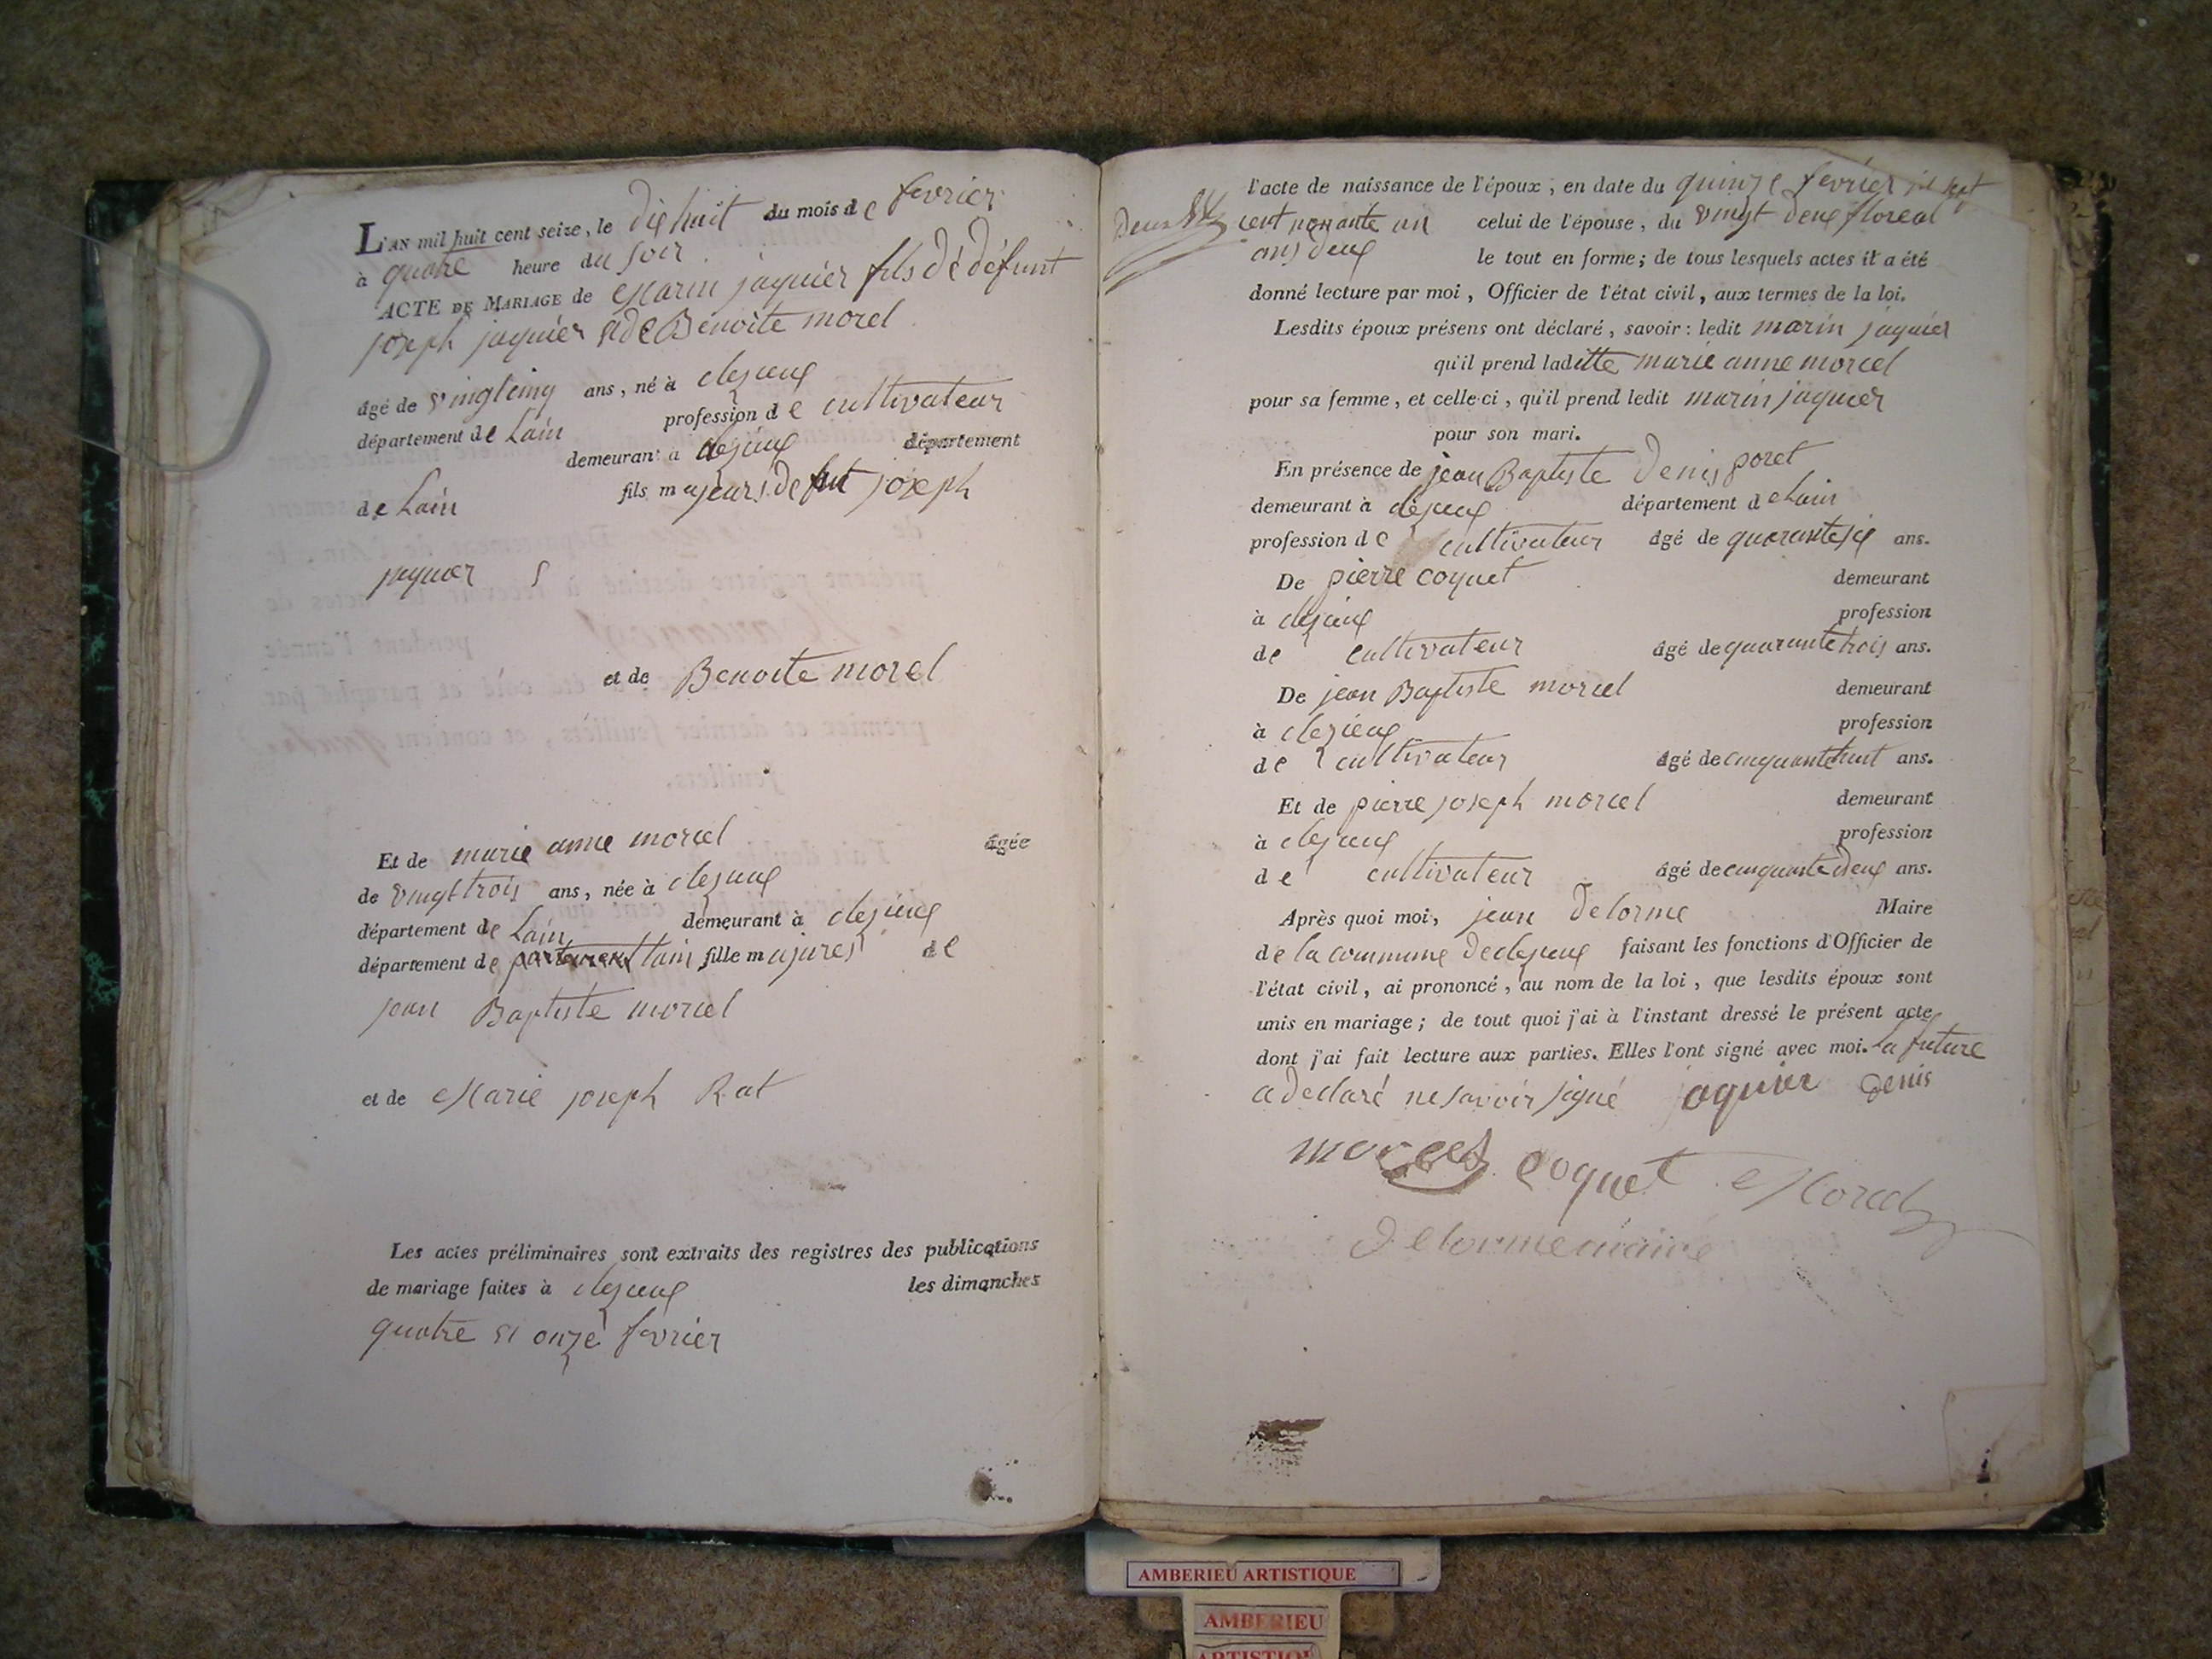 L'AN mil huit cent seize, le dixhuit du mois de fevrier
à quatre heure du soir
ACTE DE MARIAGE de Marin jaquier fils de défunt
joseph jaquier et de Benoite morel
âgé de vingtcinq ans, né à clezieux
département de Lain profession de cultivateur
demeurant à clezieux département
de Lain fils majeurs de fut joseph
jaquier
et de Benoite morel
Et de marie anne morcel âgée
de vingt trois ans, née à clezieux
département de Lain demeurant à clezieux
département de lain fille majures de
jean Baptiste morcel
et de Marie joseph Rat
Les actes préliminaires sont extraits des registres des publications
de mariage faites à clezieux les dimanches
quatre et onze fevrier
l'acte de naissance de l'époux, en date du quinze fevrier sept
cent nonante un celui de l'épouse, du vingt deux floreal
ans deux le tout en forme; de tous lesquels actes il a été
donné lecture par moi, Officier de l'état civil, aux termes de la loi.
Lesdits époux présens ont déclaré, savoir: ledit marin jaquier
qu'il prend laditte marie anne morcel
pour sa femme, et celle-ci, qu'il prend ledit marin jaquier
pour son mari.
En présence de jean Baptiste Denis goret
demeurant à clezieux département de Lain
profession de cultivateur âgé de quarante six ans.
De pierre coquet demeurant
à clezieux profession
de cultivateur âgé de quarante trois ans.
De jean Baptiste morcel demeurant
à clezieux profession
de cultivateur âgé de cinquante huit ans.
Et de pierre joseph morcel demeurant
à clezieux profession
de cultivateur âgé de cinquante deux ans.
Après quoi moi, jean Delorme Maire
de la commune de clezieux faisant les fonctions d'Officier de
l'état civil, ai prononcé, au nom de la loi, que lesdits époux sont
unis en mariage; de tout quoi j'ai à l'instant dressé le présent acte
dont j'ai fait lecture aux parties. Elles l'ont signé avec moi. La future
a declaré ne savoir signé jaquier Denis
morcel coquet Morcel
Delorme maire
AMBERIEU ARTISTIQUE
AMBERIEU
ARTISTIQUE